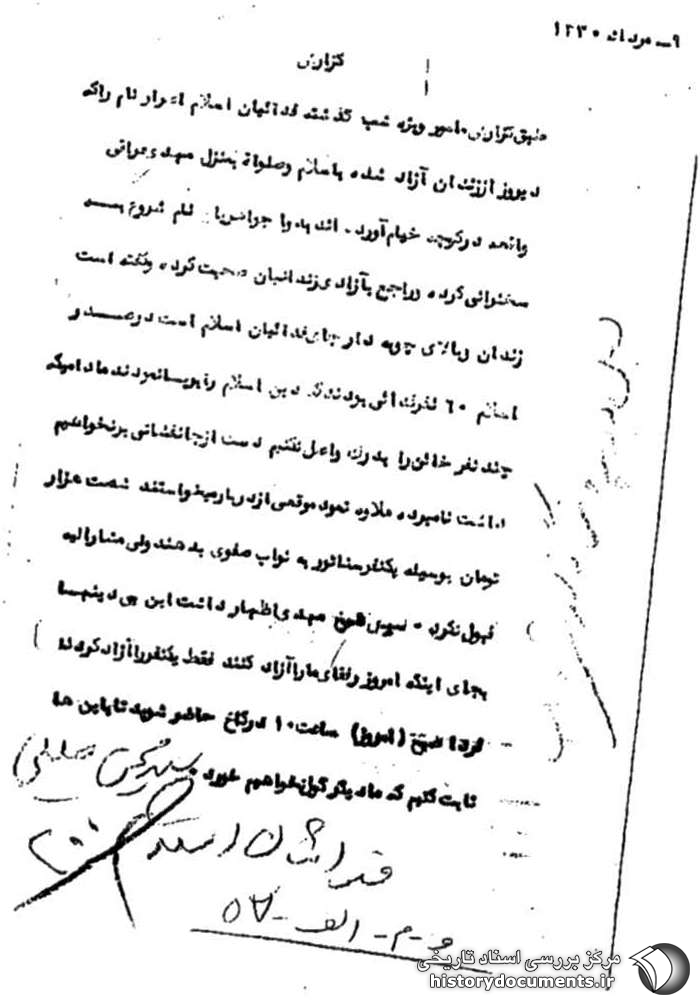 ۹ـ مرداد ۱۳۳۰
گزارش
طبق گزارش مامور ویژه شب گذشته فدائیان اسلام اسرار نام راکه
دیروز اززندان آزاد شده باسلام وصلواة بمنزل مهدی عراقی
واقعه درکوچه خیام آورده اند بدوا جوانی نام شروع بـــه
سخنرانی کرده وراجع بآزادی زندانیان صحبت کرده وگفته است
زندان وبالای چوبه دار جای فدائیان اسلام است درصــدر
اسلام ۶۰ نفر بودندکه دین اسلام را نمودند مادامیکه
چند نفر خائن را بدرک واصل نکنیم دست ازجانفشانی برنخواهیم
داشت نامبرده علاوه نمود موقعی ازدربار میخواستند شصت هزار
تومان بوسیله یکنفر سناتور به نواب صفوی بدهند ولی مشارالیه
قبول نکرد ـ سپس شیخ مهدی اظهار داشت این بی دینهــا
بجای اینکه امروز رفقای ماراآزاد کنند فقط یکنفرراآزاد کردند
فردا صبح (امروز) ساعت۱۰ درکاخ حاضر شوید تاباین ها
ثابت کنیم که مادیگر گول نخواهیم خورد .
فدائیان اسلام
۲۰۰
و - م - الف - ۵۷
مرکز بررسی اسناد تاریخی
historydocuments.ir